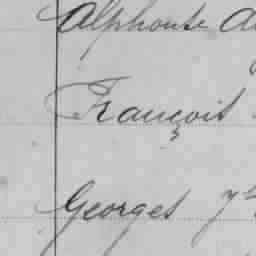 Alphonse
François
Georges